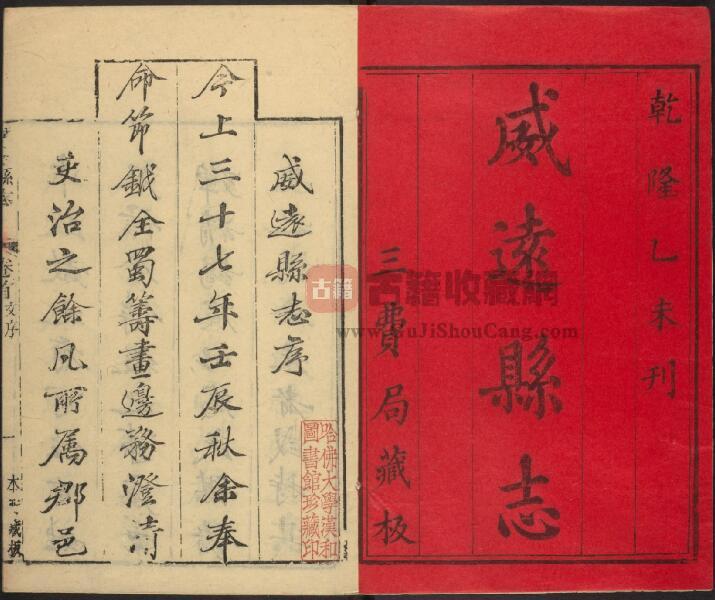 乾隆乙未刊
威遠縣志
三費局藏板
威遠縣志序
今上三十七年壬辰秋余奉
命節鉞全蜀籌畫邊務澄清
吏治之餘凡所屬郡邑
哈佛大學漢和
圖書館珍藏印
古籍
古籍收藏網
www.GuJiShouCang.com